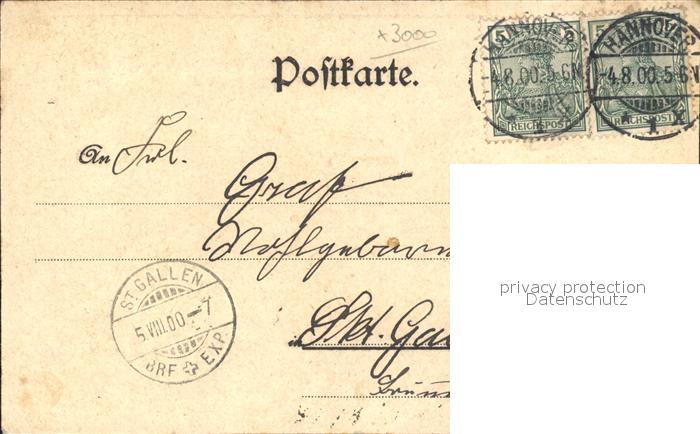 ×3000
Postkarte.
5 5
HANNOVER HANNOVER
-4.8.00.5-6N -4.8.00.5-6N
REICHSPOST REICHSPOST
1 1
An Frl.
Graf
Wohlgeborn
ST. GALLEN
5.VIII.00-7
BRF. EXP.
Skt. Ga
privacy protection
Datenschutz